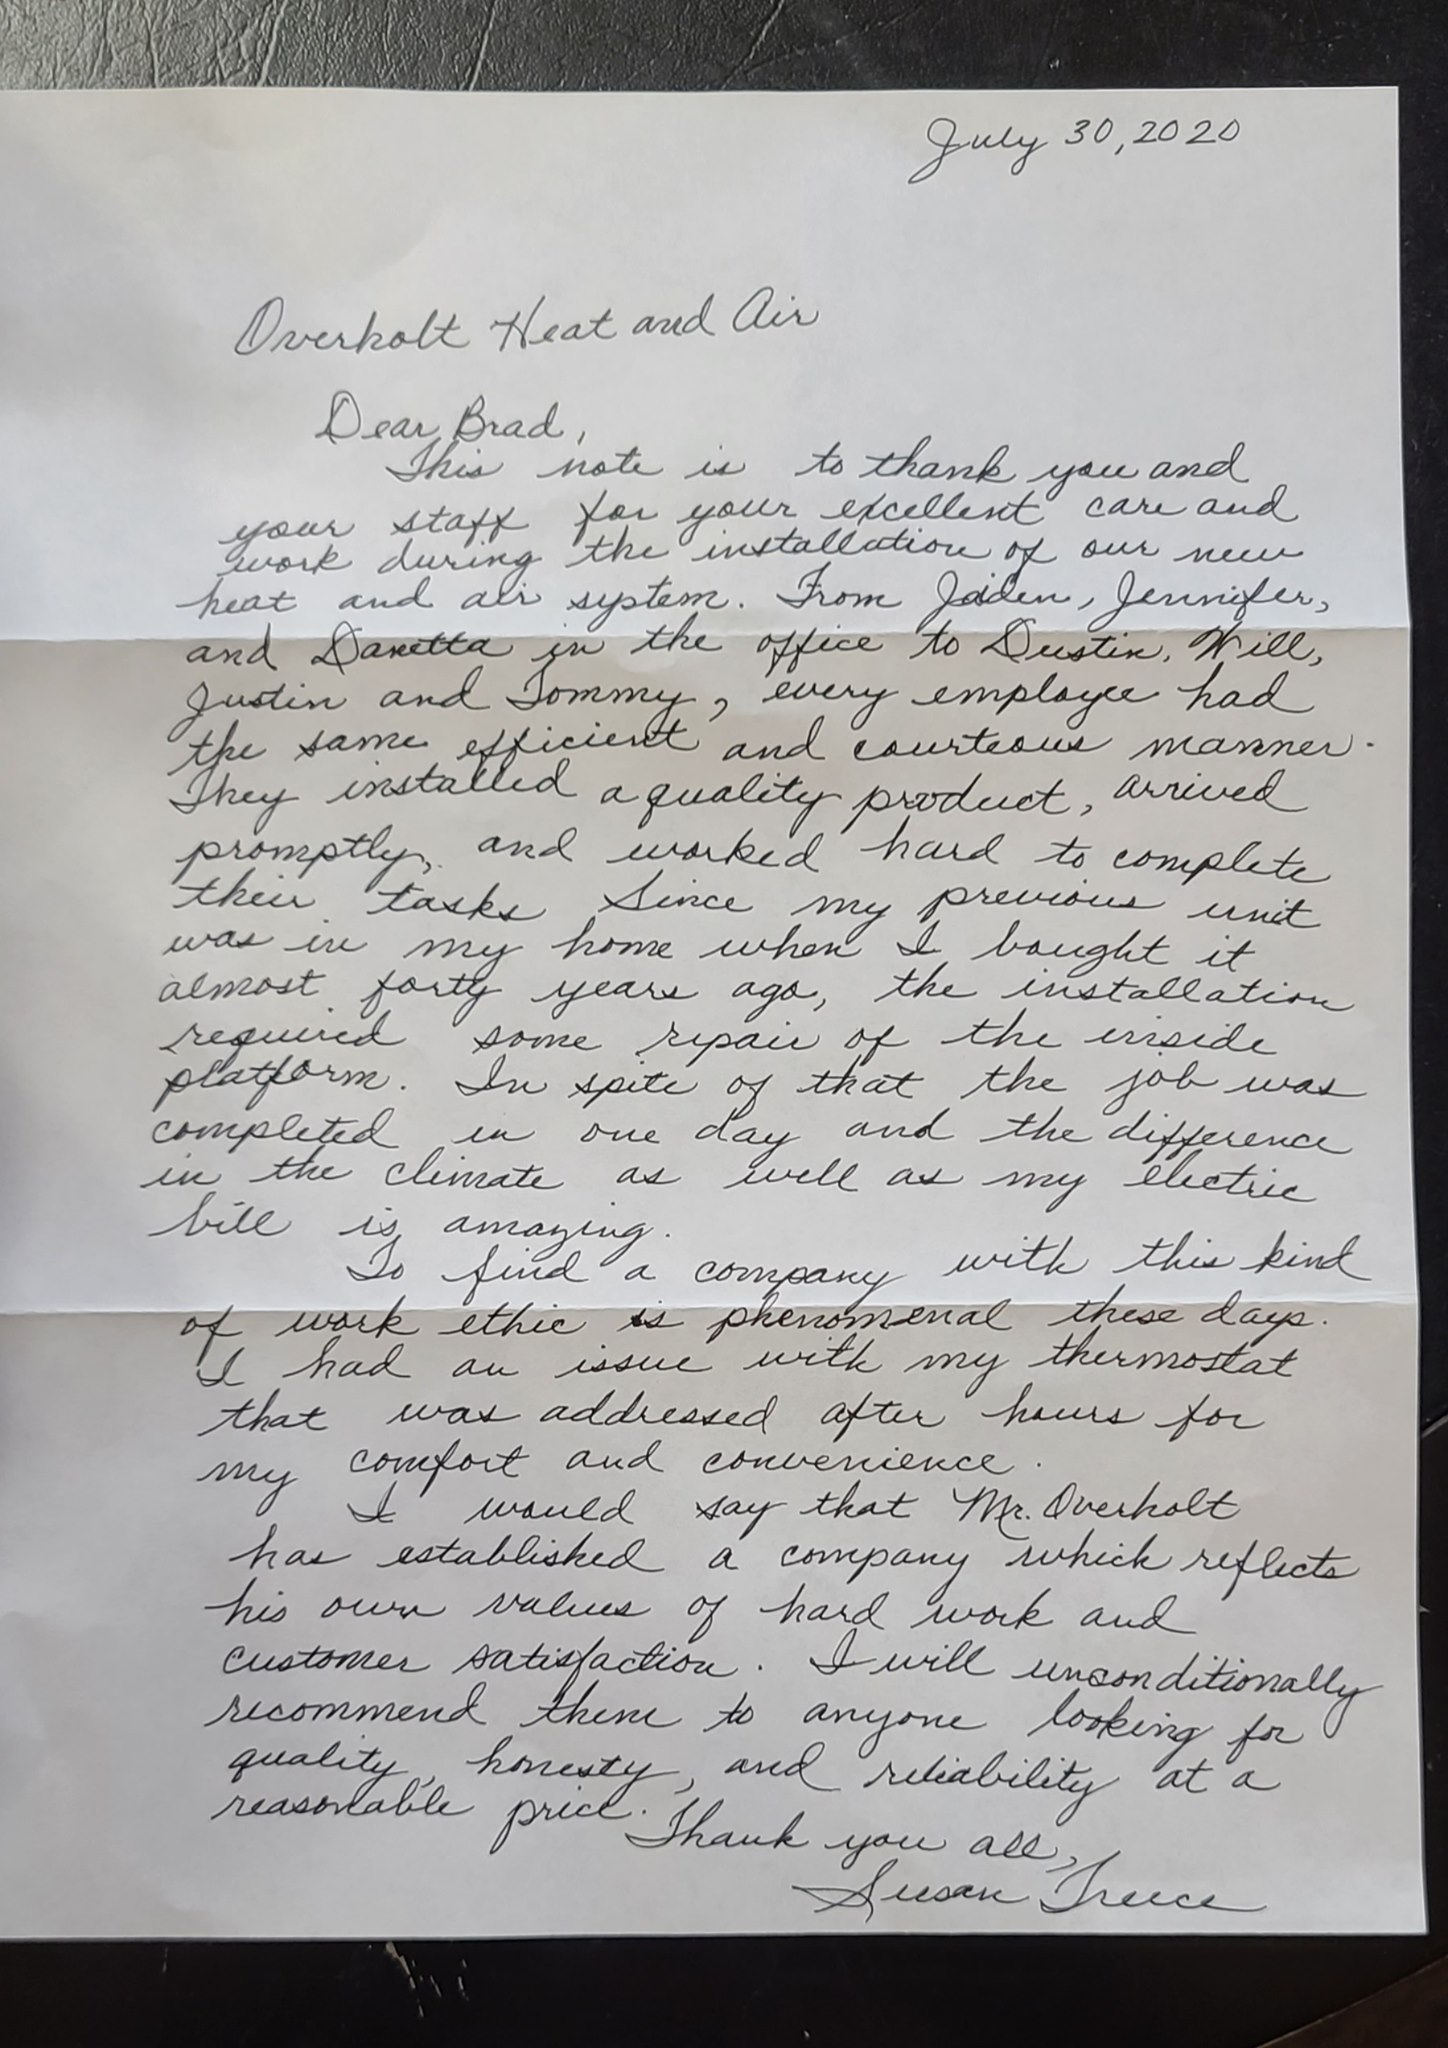 July 30, 2020
Overholt Heat and Air
Dear Brad,
This note is to thank you and
your staff for your excellent care and
work during the installation of our new
heat and air system. From Jaiden, Jennifer,
and Danetta in the office to Dustin, Will,
Justin and Tommy, every employee had
the same efficient and courteous manner.
They installed a quality product, arrived
promptly, and worked hard to complete
their tasks Since my previous unit
was in my home when I bought it
almost forty years ago, the installation
required some repair of the inside
platform. In spite of that the job was
completed in one day and the difference
in the climate as well as my electric
bill is amazing.
To find a company with this kind
of work ethic is phenomenal these days.
I had an issue with my thermostat
that was addressed after hours for
my comfort and convenience.
I would say that Mr. Overholt
has established a company which reflects
his own values of hard work and
customer satisfaction. I will unconditionally
recommend them to anyone looking for
quality, honesty, and reliability at a
reasonable price.
Thank you all,
Susan Treece